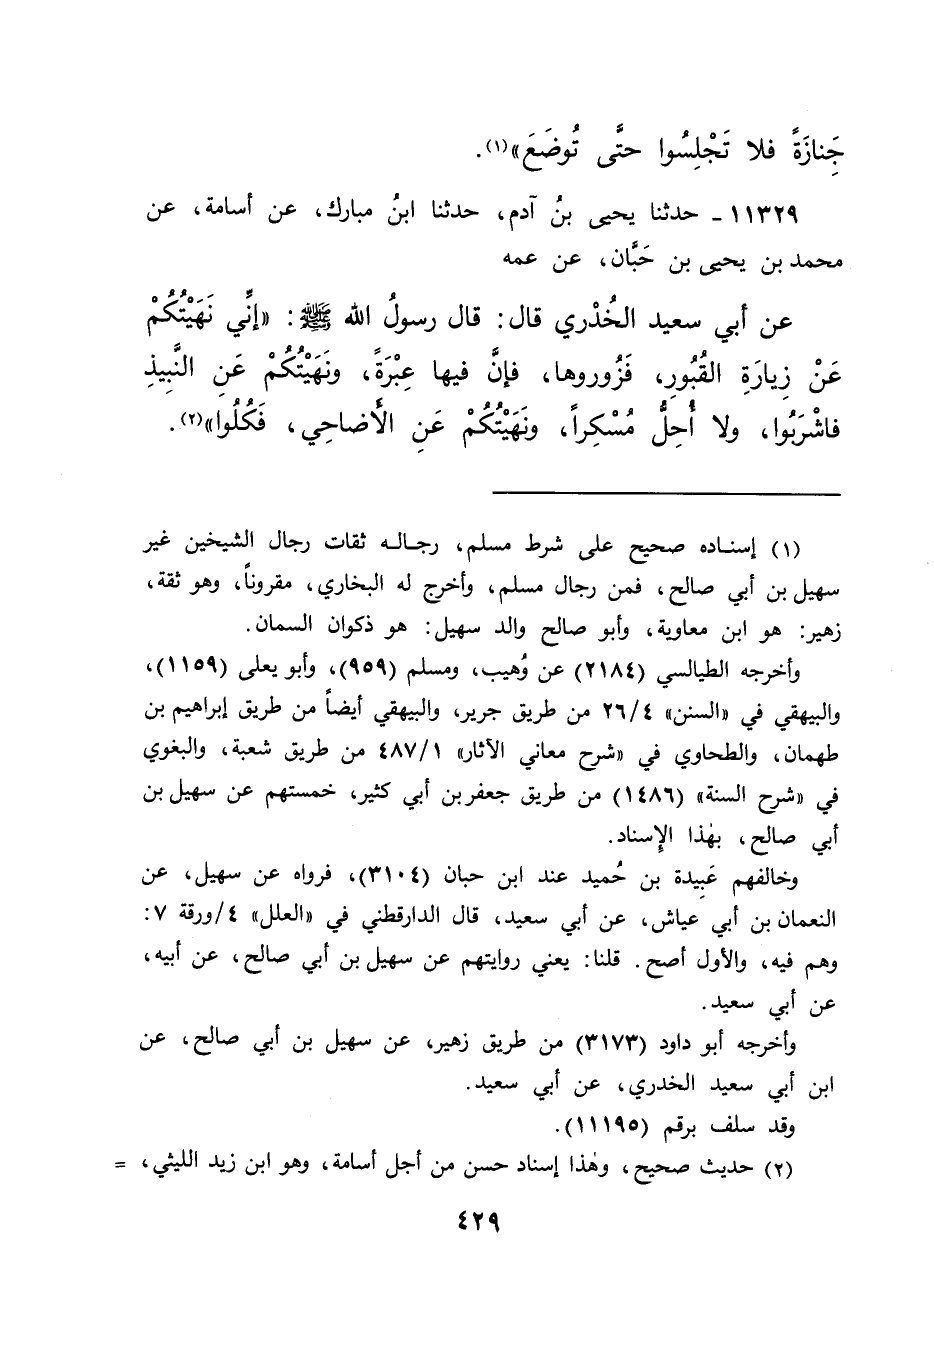 جَنازَةً فلا تَجْلِسُوا حتَّى تُوضَعَ»(١).
١١٣٢٩ - حدثنا يحيى بنُ آدم، حدثنا ابنُ مبارك، عن أسامة، عن
محمد بن يحيى بن حَبَّان، عن عمه
عن أبي سعيد الخُدْري قال: قال رسولُ الله ﷺ: «إنِّي نَهَيْتُكُمْ
عَنْ زِيارَةِ القُبُورِ، فَزُوروها، فإنَّ فيها عِبْرَةً، ونَهَيْتُكُمْ عَنِ النَّبِيذِ
فاشْرَبُوا، ولا أُحِلُّ مُسْكِراً، ونَهَيْتُكُمْ عَنِ الأَضاحِي، فَكُلُوا»(٢).
(١) إسناده صحيح على شرط مسلم، رجاله ثقات رجال الشيخين غير
سهيل بن أبي صالح، فمن رجال مسلم، وأخرج له البخاري، مقروناً، وهو ثقة،
زهير: هو ابن معاوية، وأبو صالح والد سهيل: هو ذكوان السمان.
وأخرجه الطيالسي (٢١٨٤) عن وُهيب، ومسلم (٩٥٩)، وأبو يعلى (١١٥٩)،
والبيهقي في «السنن» ٢٦/٤ من طريق جرير، والبيهقي أيضاً من طريق إبراهيم بن
طهمان، والطحاوي في «شرح معاني الآثار» ٤٨٧/١ من طريق شعبة، والبغوي
في «شرح السنة» (١٤٨٦) من طريق جعفر بن أبي كثير، خمستهم عن سهيل بن
أبي صالح، بهٰذا الإِسناد.
وخالفهم عَبِيدة بن حُميد عند ابن حبان (٣١٠٤)، فرواه عن سهيل، عن
النعمان بن أبي عياش، عن أبي سعيد، قال الدارقطني في «العلل» ٤/ورقة ٧:
وهم فيه، والأول أصح. قلنا: يعني روايتهم عن سهيل بن أبي صالح، عن أبيه،
عن أبي سعيد.
وأخرجه أبو داود (٣١٧٣) من طريق زهير، عن سهيل بن أبي صالح، عن
ابن أبي سعيد الخدري، عن أبي سعيد.
وقد سلف برقم (١١١٩٥).
(٢) حديث صحيح، وهٰذا إسناد حسن من أجل أسامة، وهو ابن زيد الليثي، =
٤٢٩